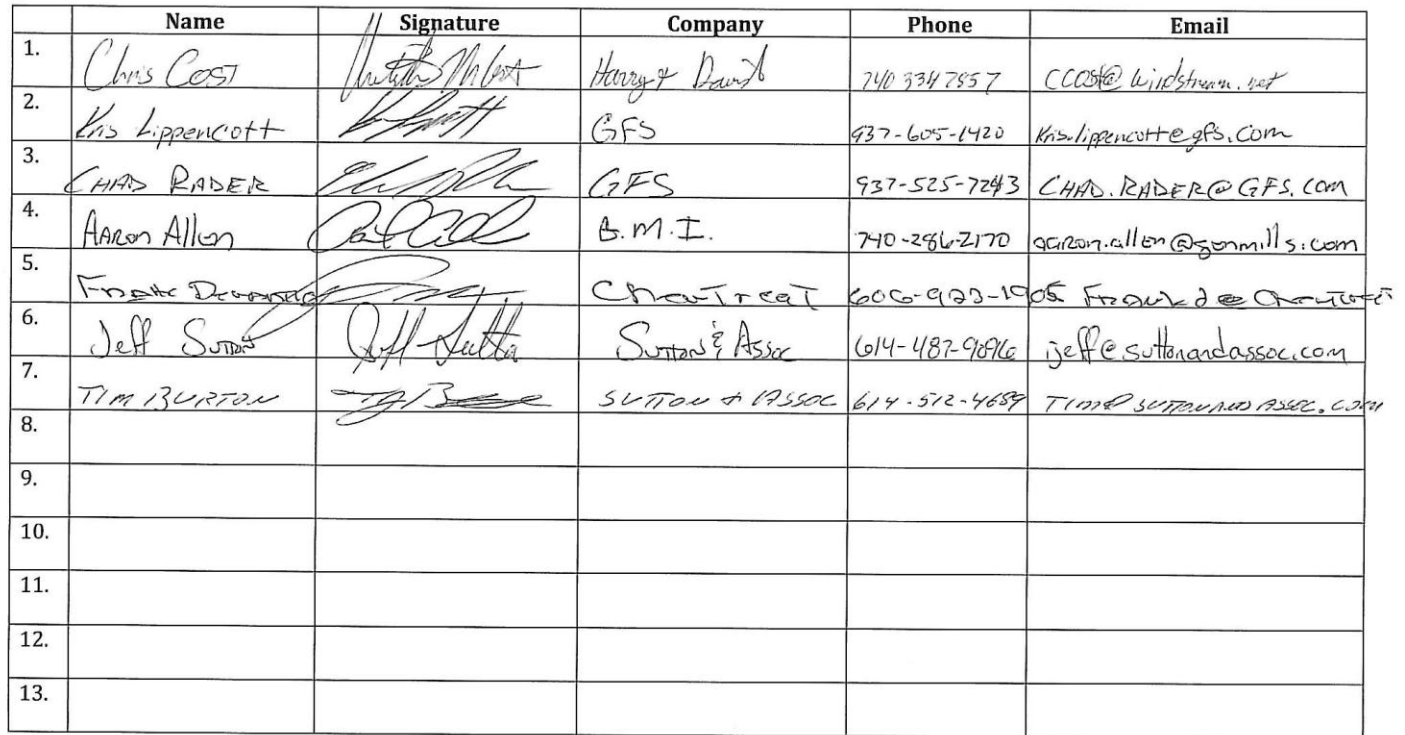 Name Signature Company Phone Email
1. Chris Cost Harry & David 740 334 7857 ccost@windstream.net
2. Kris Lippencott GFS 937-605-1420 Kris.lippencott@gfs.com
3. CHAD RADER GFS 937-525-7243 CHAD.RADER@GFS.COM
4. Aaron Allen G.M.I. 740-286-2170 aaron.allen@genmills.com
5. Frank ChemTreat 606-923-1905
6. Jeff Sutton Jeff Sutton Sutton & Assoc 614-487-9096 jeff@suttonandassoc.com
7. TIM BURTON SUTTON & ASSOC 614-512-4689 TIM@SUTTONANDASSOC.COM
8.
9.
10.
11.
12.
13.